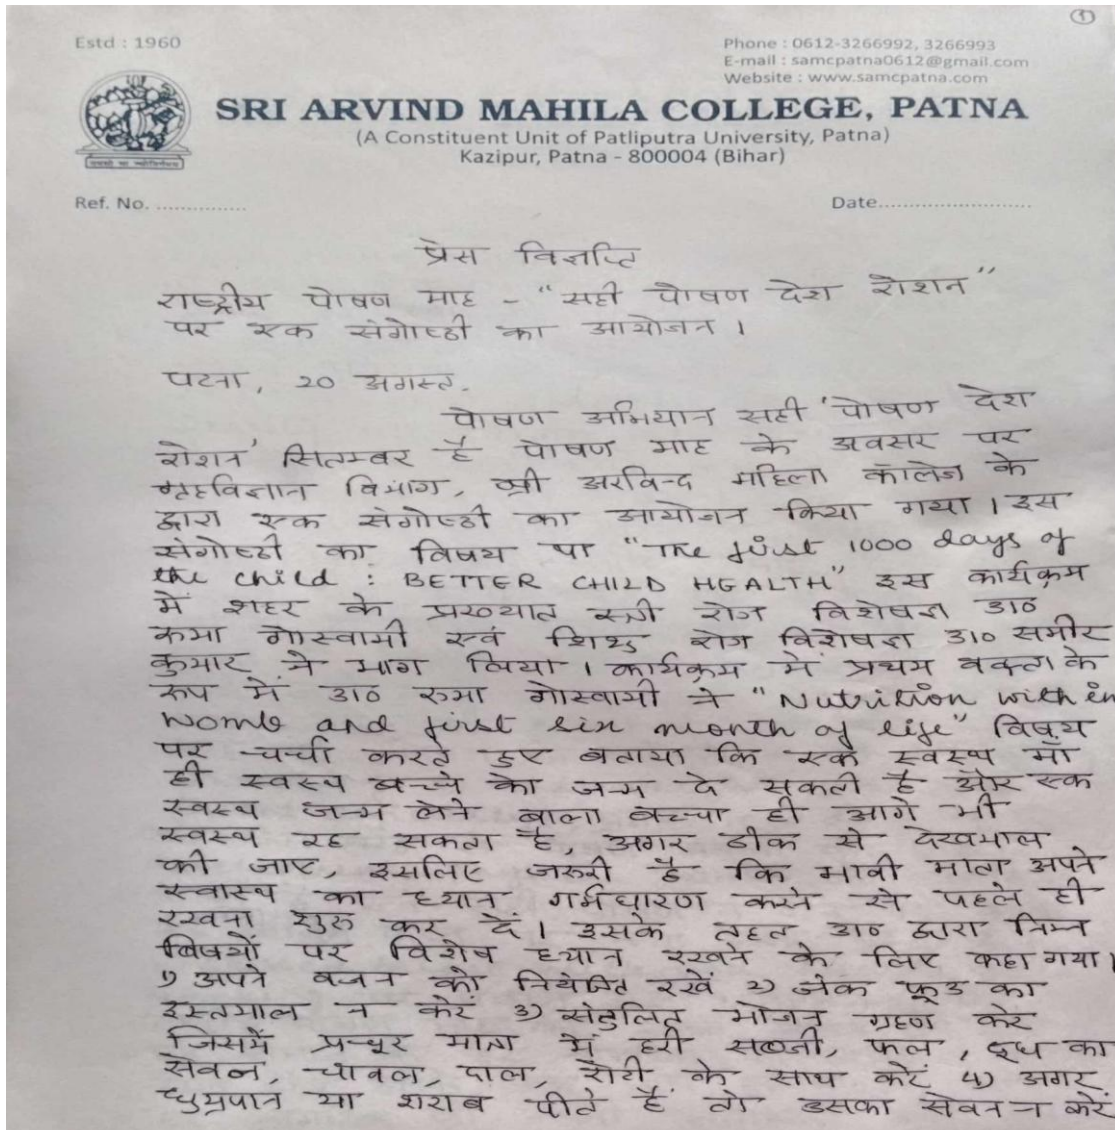 ①
Estd : 1960
Phone : 0612-3266992, 3266993
E-mail : samcpatna0612@gmail.com
Website : www.samcpatna.com
SRI ARVIND MAHILA COLLEGE, PATNA
(A Constituent Unit of Patliputra University, Patna)
Kazipur, Patna - 800004 (Bihar)
Ref. No. ...............
Date..........................
प्रेस विज्ञप्ति
राष्ट्रीय पोषण माह - "सही पोषण देश रोशन"
पर एक संगोष्ठी का आयोजन ।
पटना, 20 अगस्त.
पोषण अभियान सही 'पोषण देश
रोशन' सितम्बर है पोषण माह के अवसर पर
गृहविज्ञान विभाग, श्री अरविन्द महिला कॉलेज के
द्वारा एक संगोष्ठी का आयोजन किया गया । इस
संगोष्ठी का विषय था "The first 1000 days of
the child : BETTER CHILD HEALTH" इस कार्यक्रम
में शहर के प्रख्यात स्त्री रोग विशेषज्ञ डा०
रूमा गोस्वामी एवं शिशु रोग विशेषज्ञ डा० समीर
कुमार ने भाग लिया । कार्यक्रम में प्रथम वक्ता के
रूप में डा० रुमा गोस्वामी ने "Nutrition with in
womb and first six month of life" विषय
पर चर्चा करते हुए बताया कि एक स्वस्थ माँ
ही स्वस्थ बच्चे को जन्म दे सकती है और एक
स्वस्थ जन्म लेने बाला बच्चा ही आगे भी
स्वस्थ रह सकता है, अगर ठीक से देखभाल
की जाए, इसलिए जरुरी है कि भावी माता अपने
स्वास्थ का ध्यान गर्भधारण करने से पहले ही
रखना शुरु कर दें । इसके तहत डा० द्वारा निम्न
बिषयों पर विशेष ध्यान रखने के लिए कहा गया।
1) अपने वजन को नियंत्रित रखें 2) जंक फूड का
इस्तमाल न करें 3) संतुलित भोजन ग्रहण करें
जिसमें प्रचूर मात्रा में हरी सब्जी, फल, दूध का
सेवन, चावल, दाल, रोटी के साथ करें 4) अगर
धुम्रपान या शराब पीते हैं तो उसका सेवन न करें